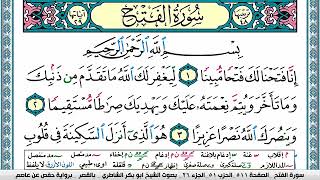 سُورَةُ الْفَتْحِ
بِسْمِ اللَّهِ الرَّحْمَٰنِ الرَّحِيمِ
إِنَّا فَتَحْنَا لَكَ فَتْحًا مُّبِينًا ١ لِّيَغْفِرَ لَكَ اللَّهُ مَا تَقَدَّمَ مِن ذَنۢبِكَ
وَمَا تَأَخَّرَ وَيُتِمَّ نِعْمَتَهُۥ عَلَيْكَ وَيَهْدِيَكَ صِرَٰطًا مُّسْتَقِيمًا ٢
وَيَنصُرَكَ اللَّهُ نَصْرًا عَزِيزًا ٣ هُوَ الَّذِىٓ أَنزَلَ السَّكِينَةَ فِى قُلُوبِ
سورة الفتح الصفحة ٥١١ الجزء ٢٦ بصوت الشيخ أبو بكر الشاطري بالقصر رواية حفص عن عاصم